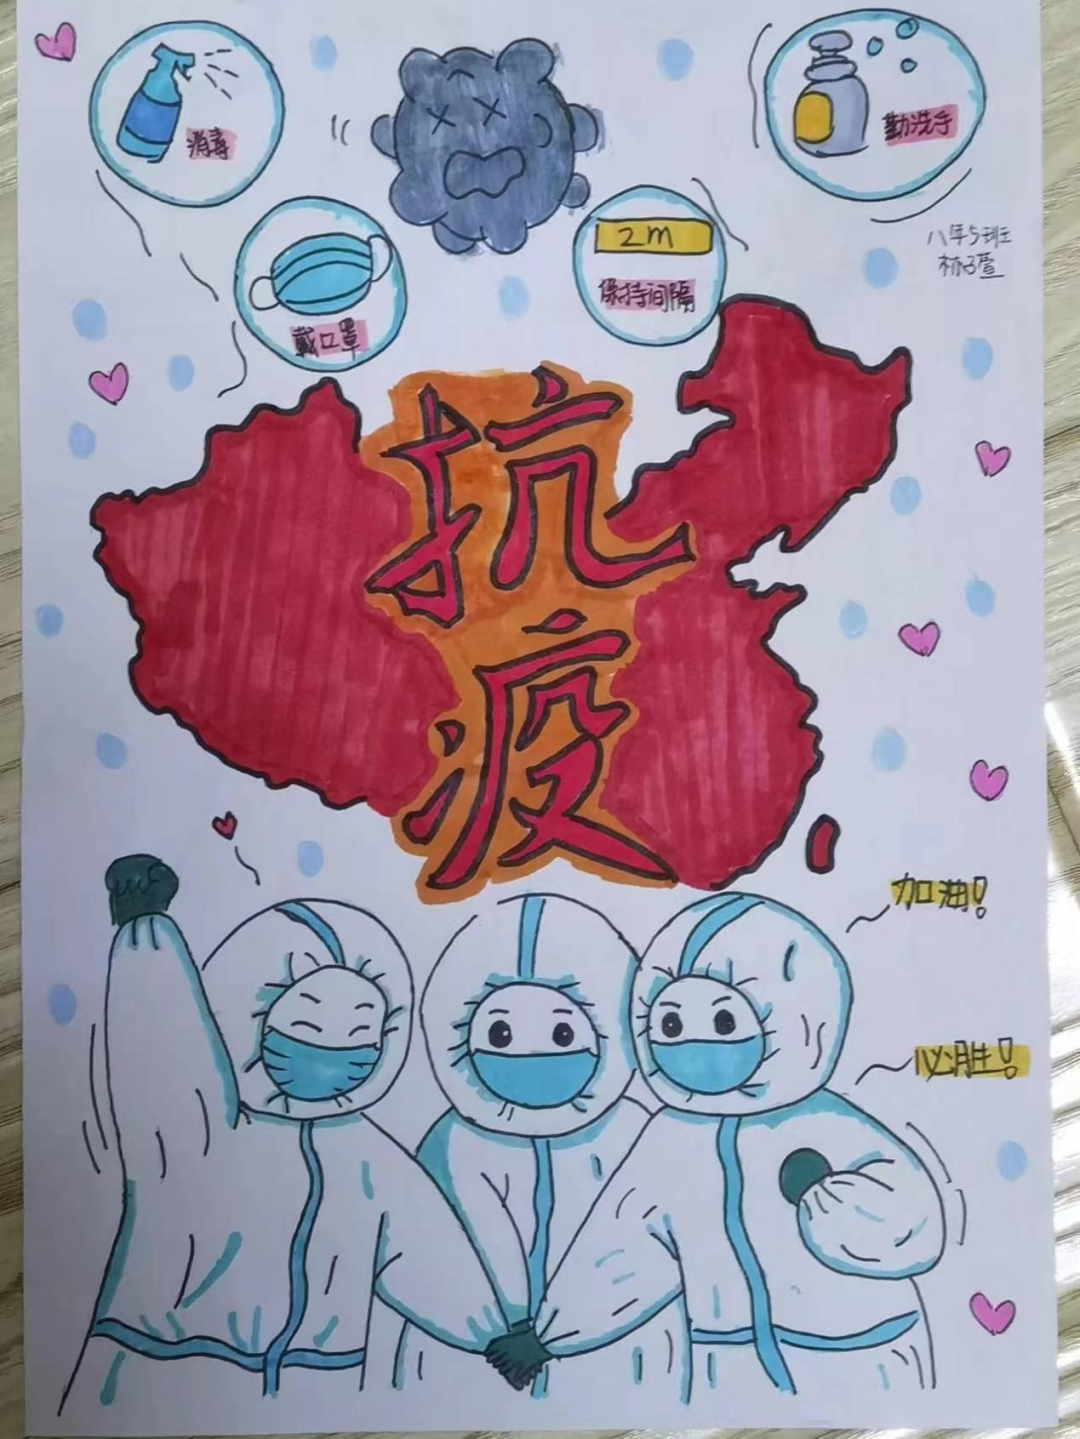 消毒
勤洗手
2m
戴口罩
保持间隔
八年5班
林子萱
抗
疫
加油!
必胜!